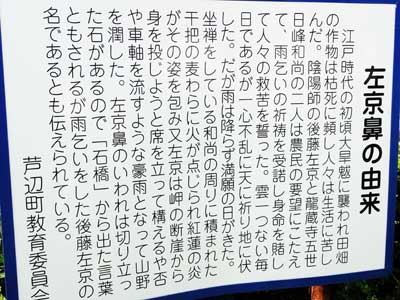 左京鼻の由来
江戸時代の初頃大旱魃に襲われ田畑
の作物は枯死に頻し人々は生活に苦し
んだ。陰陽師の後藤左京と龍蔵寺五世
日峰和尚の二人は農民の要望にこたえ
て、雨乞いの祈祷を受諾し身命を賭し
て人々の救苦を誓った。雲一つない毎
日であるが一心不乱に天に祈り地に伏
した。だが雨は降らず満願の日がきた。
坐禅をしている和尚の周りに積まれた
干把の麦わらに火が点じられ紅蓮の炎
がその姿を包み又左京は岬の断崖から
身を投じようと席を立って構えるや否
や車軸を流すような豪雨となって山野
を潤した。左京鼻のいわれは切り立っ
た石があるので「石橋」から出た言葉
ともされるが雨乞いをした後藤左京の
名であるとも伝えられている。
芦辺町教育委員会